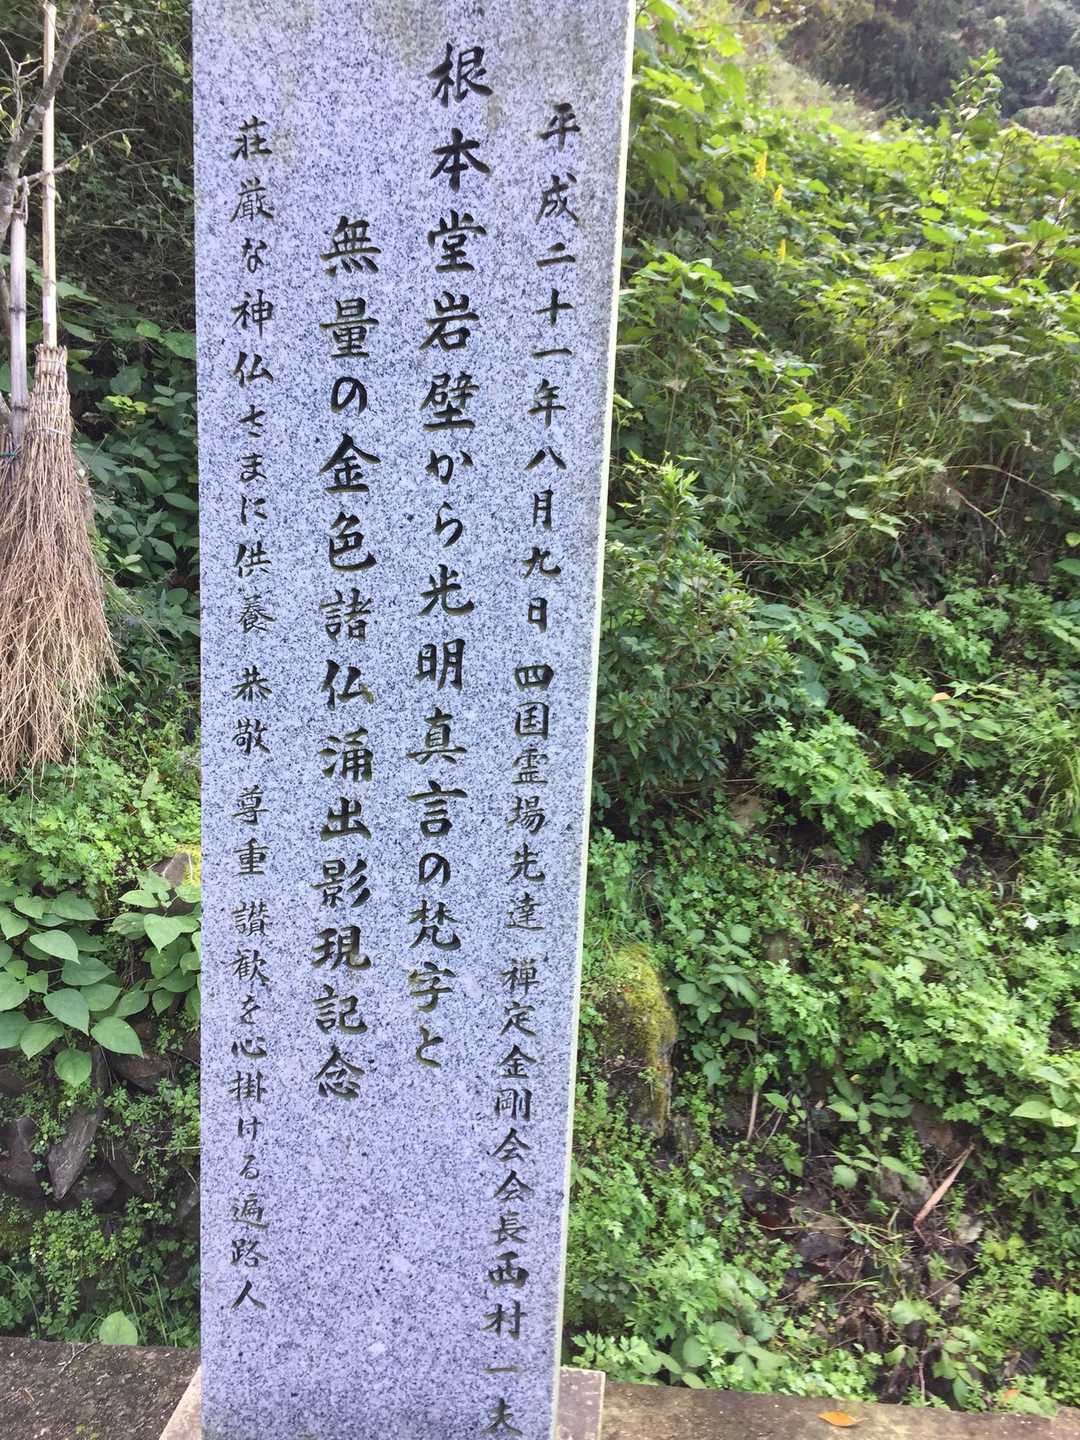 平成二十一年八月九日 四国霊場先達 禅定金剛会会長西村一
根本堂岩壁から光明真言の梵字と
無量の金色諸仏涌出影現記念
荘厳な神仏さまに供養 恭敬 尊重 讃歓を心掛ける遍路人